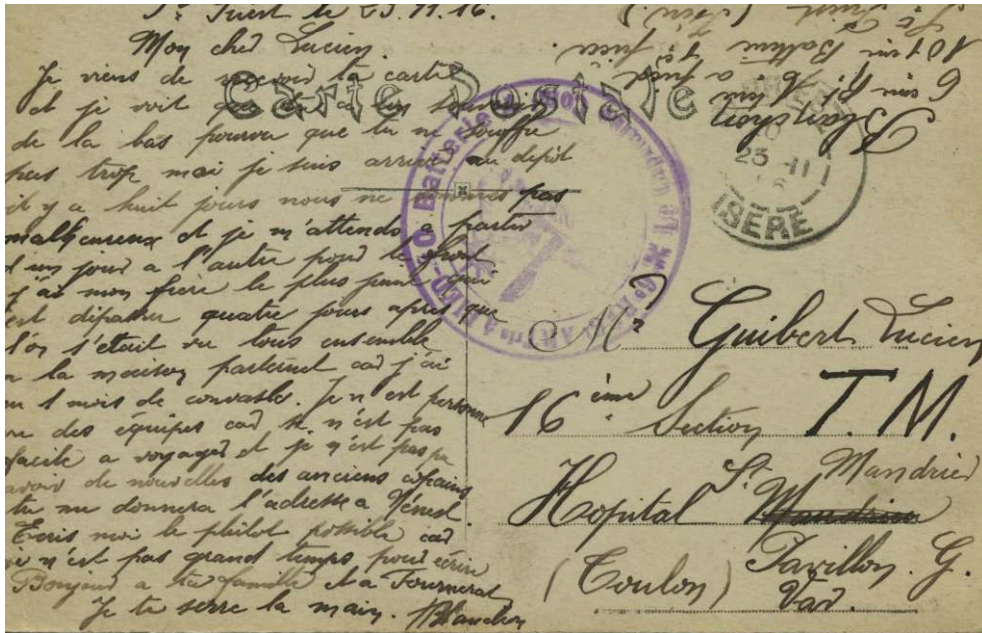 St Quest le 23.11.16.
Mon cher Lucien
Je viens de recevoir ta carte
et je voit que tu a un
de la bas pourvu que tu ne souffre
pas trop moi je suis arrivé au depot
il y a huit jours nous ne sommes pas
malheureux et je m'attends a partir
d'un jour a l'autre pour le front
j'ai mon frère le plus jeune qui
est disparu quatre jours après que
l'on s'était vu tous ensemble
a la maison paternel car j'ai
eu 1 mois de convales. Je n'est personne
vu des équipes car il n'est pas
facile a voyager et je n'est pas pu
avoir de nouvelles des anciens copains
tu me donnera l'adresse a Vénest.
Ecris moi le plutot possible car
je n'est pas grand temps pour écrire
Bonjour a ta famille et a Tournerat
Je te serre la main. Blanchon
Carte Postale
6e
101
Batterie
23 -11
ISERE
Mr Guibert Lucien
16ème Section T. M.
Hopital St Mandrier
Pavillon. G.
(Toulon) Var.